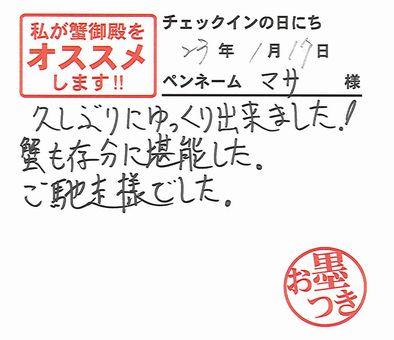 私が蟹御殿を
オススメ
します!!
チェックインの日にち
23年1月17日
ペンネーム マサ 様
久しぶりにゆっくり出来ました!
蟹も存分に堪能した。
ご馳走様でした。
お墨つき